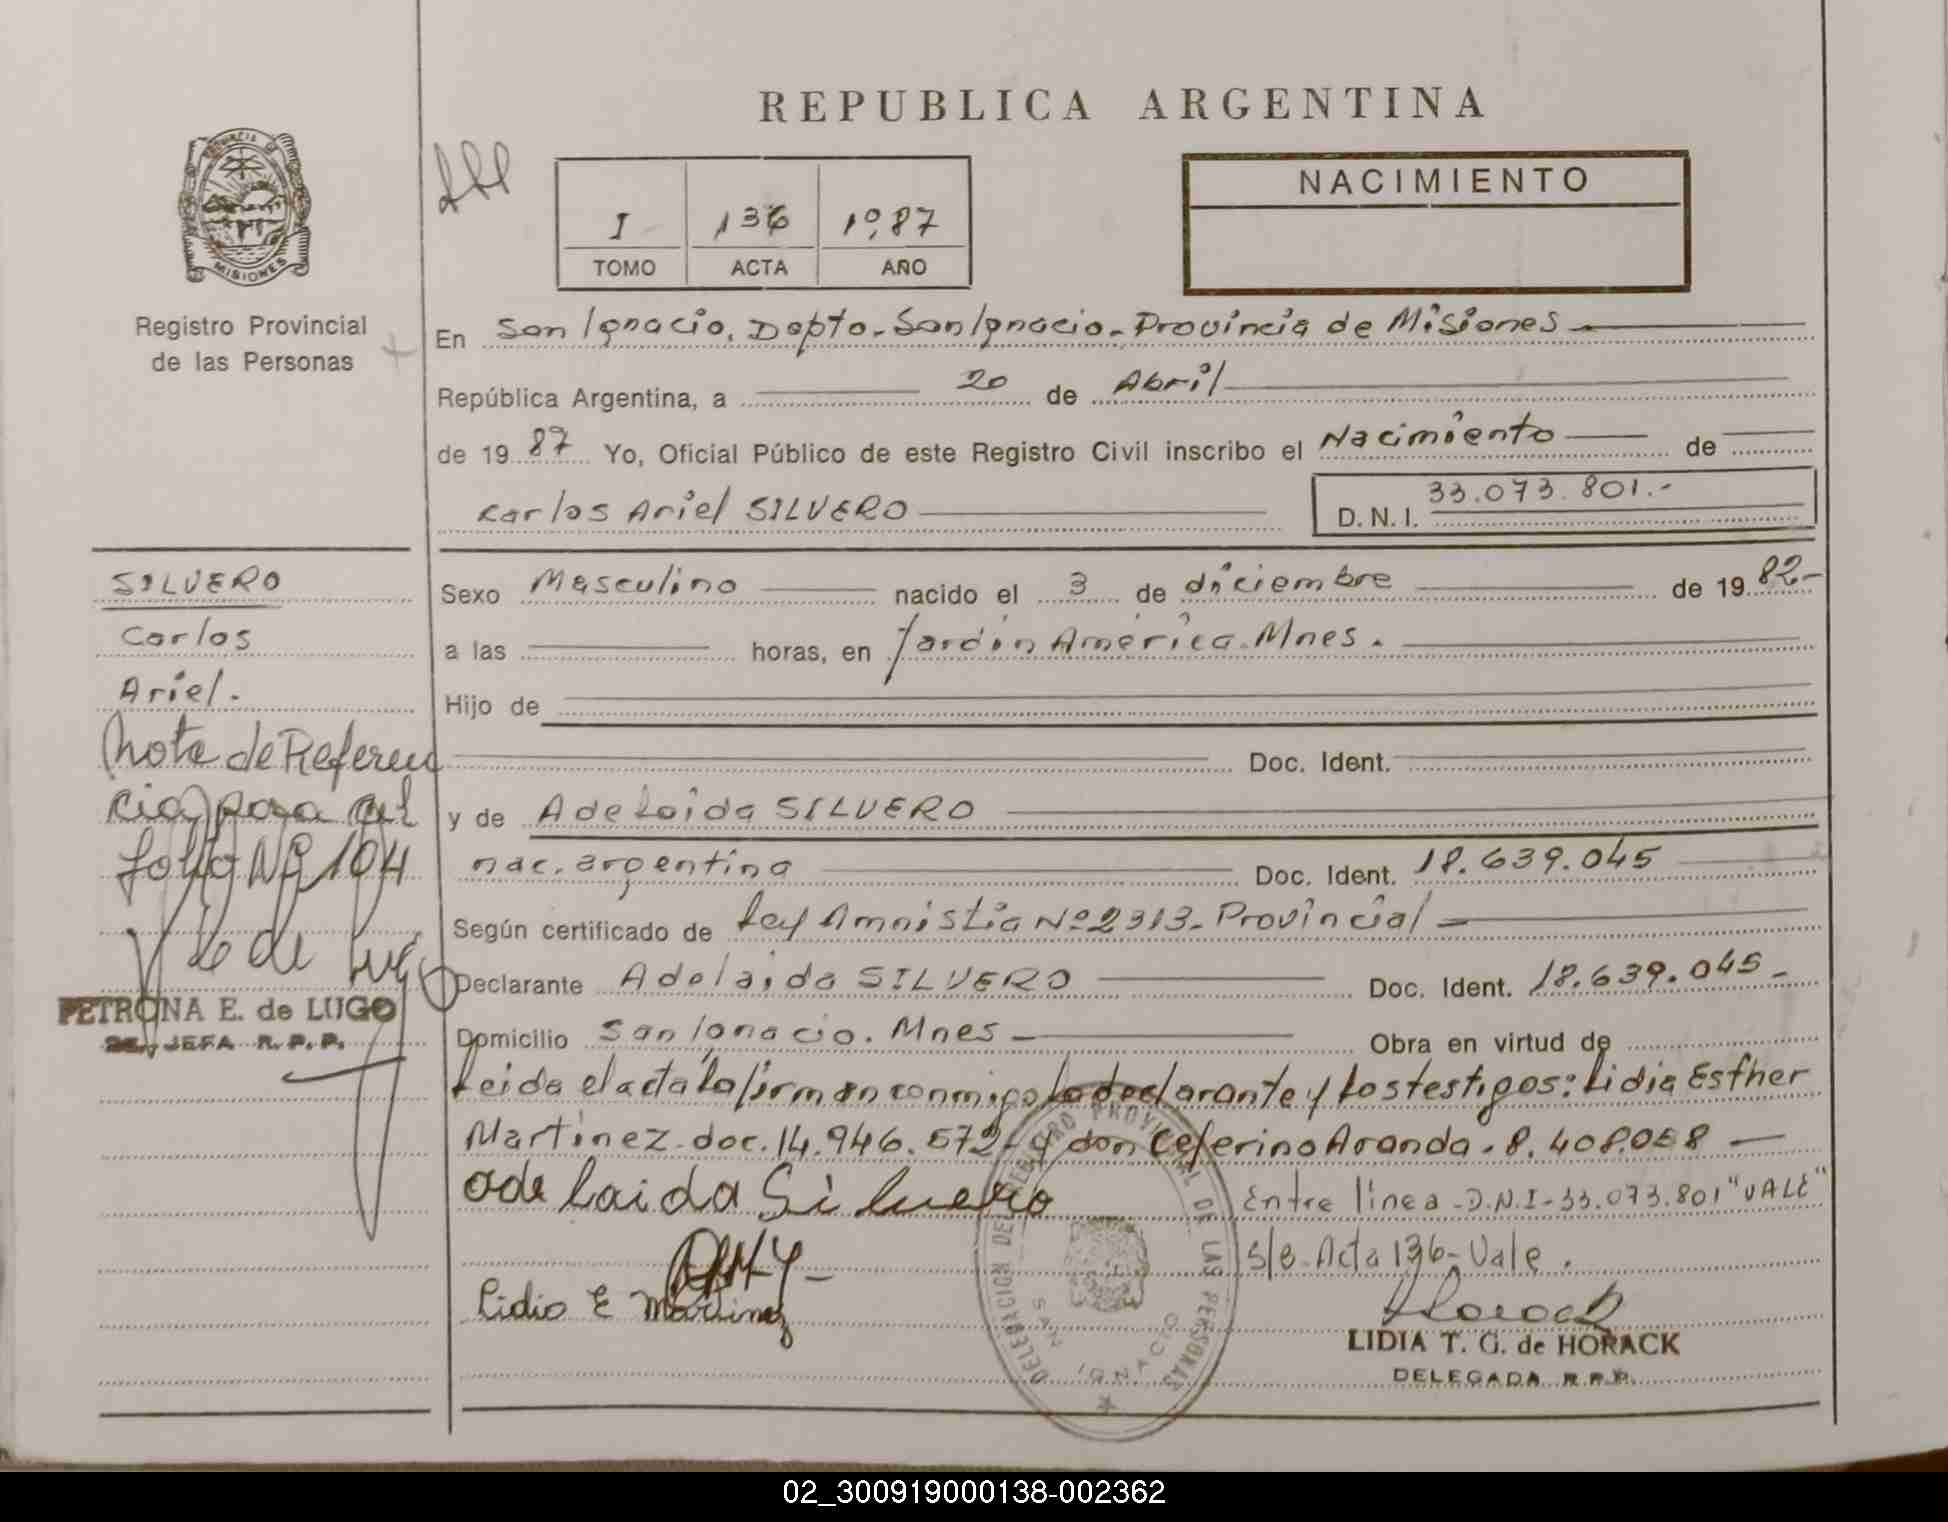 REPUBLICA ARGENTINA
PROVINCIA DE
MISIONES
Registro Provincial
de las Personas
I 136 1987
TOMO ACTA AÑO
NACIMIENTO
En San Ignacio, Depto. San Ignacio. Provincia de Misiones
República Argentina, a 20 de Abril
de 1987 Yo, Oficial Público de este Registro Civil inscribo el Nacimiento de
Karlos Ariel SILVERO
D.N.I. 33.073.801.-
SILVERO
Carlos
Ariel.
Nota de Referen
cia para al
folio Nº 104
PETRONA E. de LUGO
JEFA R. P. P.
Sexo Masculino nacido el 3 de diciembre de 1982-
a las horas, en Jardín América. Mnes.
Hijo de
Doc. Ident.
y de Adelaida SILVERO
nac. argentina Doc. Ident. 18.639.045
Según certificado de Ley Amnistia Nº 2313- Provincial
Declarante Adelaida SILVERO Doc. Ident. 18.639.045-
Domicilio San Ignacio. Mnes Obra en virtud de
Leida el acta la firman conmigo la declarante y los testigos: Lidia Esther
Martinez doc. 14.946.572- y don Ceferino Aranda. 8.408.058
adelaida Silvero
Entre línea -D.N.I-33.073.801 "VALE"
S/B. Acta 136- Vale.
Lidia E Martinez
DELEGACION DEL REGISTRO PROVINCIAL DE LAS PERSONAS
SAN IGNACIO
Horack
LIDIA T. G. de HORACK
DELEGADA R.P.P.
02_300919000138-002362